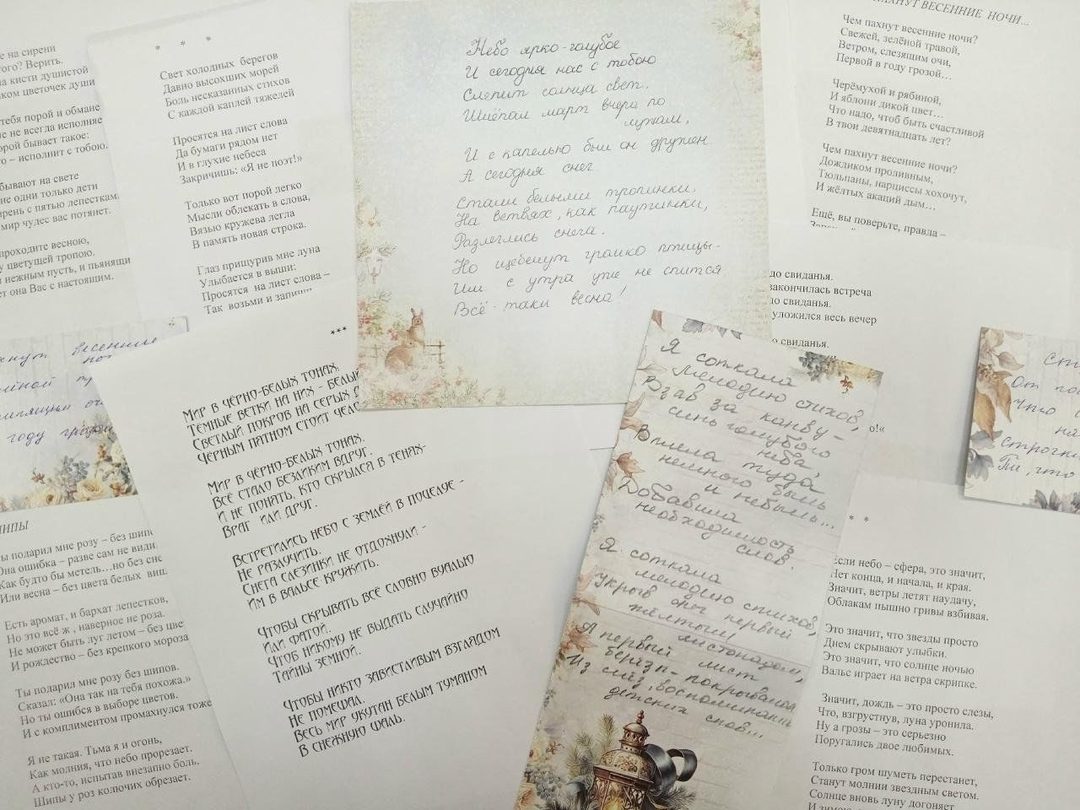 е на сирени
ого? Верить.
а кисти душистой
ком цветочек души
тебя порой и обмане
е не всегда исполняе
орой бывает такое:
то – исполнит с тобою.
бывают на свете
ие одни только дети
ирень с пятью лепесткам
мир чудес вас потянет.
проходите весною,
у цветущей тропою.
и нежным пусть, и пьянящи
ет она Вас с настоящим.
* * *
Свет холодных берегов
Давно высохших морей
Боль несказанных стихов
С каждой каплей тяжелей
Просятся на лист слова
Да бумаги рядом нет
И в глухие небеса
Закричишь: «Я не поэт!»
Только вот порой легко
Мысли облекать в слова,
Вязью кружева легла
В память новая строка.
Глаз прищурив мне луна
Улыбается в выши:
Просятся на лист слова –
Так возьми и запиши
Небо ярко-голубое
И сегодня нас с тобою
Слепит солнца свет.
Шлёпал март вчера по
лужам,
И с капелью был он дружен
А сегодня снег.
Стали белыми тропинки.
На ветвях, как паутинки,
Разлеглись снега.
Но щебечут громко птицы-
Им с утра уже не спится
Всё-таки весна!
ПАХНУТ ВЕСЕННИЕ НОЧИ...
Чем пахнут весенние ночи?
Свежей, зелёной травой,
Ветром, слезящим очи,
Первой в году грозой…
Черёмухой и рябиной,
И яблони дикой цвет…
Что надо, чтоб быть счастливой
В твои девятнадцать лет?
Чем пахнут весенние ночи?
Дождиком проливным,
Тюльпаны, нарциссы хохочут,
И жёлтых акаций дым…
Ещё, вы поверьте, правда –
до свиданья.
закончилась встреча
до свиданья.
уложился весь вечер
до свиданья.
о!«
ахнут весенние
но
году грозой
***
Мир в чёрно-белых тонах.
Темные ветки, на них – белый
Светлый покров на серых д
Чёрным пятном стоит чело
Мир в чёрно-белых тонах.
Всё стало безликим вдруг.
И не понять, кто скрылся в тенях-
Враг или друг.
Встретились небо с землёй в поцелуе -
Не разлучить.
Снега слезинки не отдохнули -
Им в вальсе кружить.
Чтобы скрывать всё словно вуалью
Или фатой.
Чтоб никому не выдать случайно
Тайны земной.
Чтобы никто завистливым взглядом
Не помешал.
Весь мир укутан белым туманом
В снежную шаль.
Я соткала
мелодию стихов,
Взяв за канву –
синь голубого
неба,
Вплела туда
немного быль
и небыль...
Добавила
необходимость
слов.
Я соткала
мелодию стихов,
Укрыв ног первый
жёлтым
листопадом,
А первый лист
берёзп - покрывалом
Из слёз, воспоминаний
детских снов...
Сти
От по
Что
на
Строчк
Ты, что
ШИПЫ
Ты подарил мне розу – без шипов
Она ошибка – разве сам не види
Как будто бы метель…но без сне
Или весна – без цвета белых виш
Есть аромат, и бархат лепестков,
Но это всё ж , наверное не роза.
Не может быть луг летом – без цве
И рождество – без крепкого мороза
Ты подарил мне розу без шипов.
Сказал: «Она так на тебя похожа.»
Но ты ошибся в выборе цветов.
И с комплиментом промахнулся тоже
Я не такая. Тьма я и огонь,
Как молния, что небо прорезает.
А кто-то, испытав внезапно боль,
Шипы у роз колючих обрезает.
* *
Если небо – сфера, это значит,
Нет конца, и начала, и края.
Значит, ветры летят наудачу,
Облакам пышно гривы взбивая.
Это значит, что звезды просто
Днем скрывают улыбки.
Это значит, что солнце ночью
Вальс играет на ветра скрипке.
Значит, дождь – это просто слезы,
Что, взгрустнув, луна уронила.
Ну а грозы – это серьезно
Поругались двое любимых.
Только гром шуметь перестанет,
Станут молнии звездным светом.
Солнце вновь луну догоняет